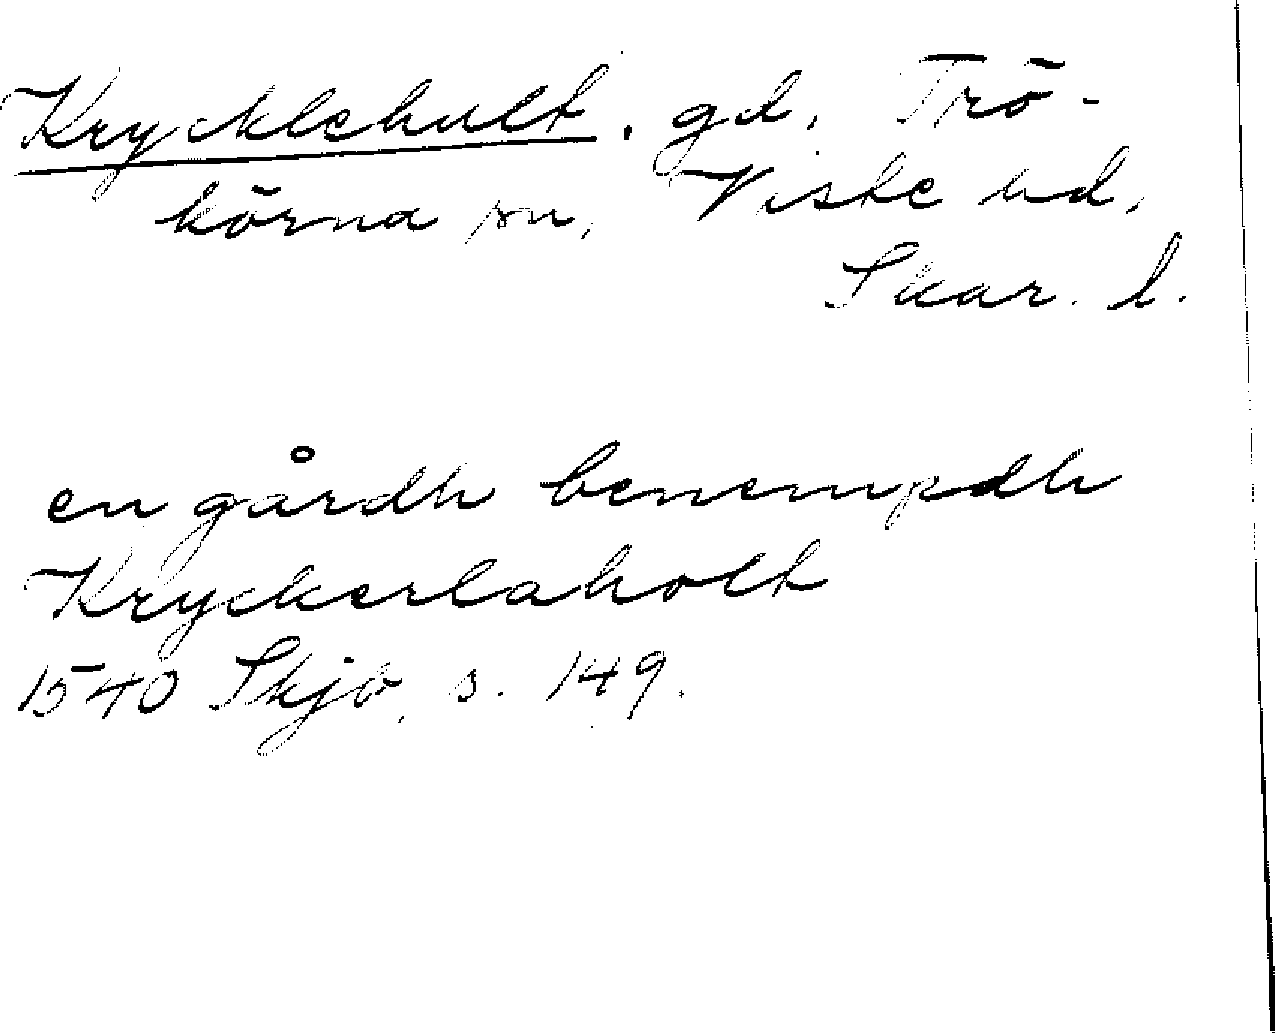 Krycklehult, gd, Trö-
körna sn, Viste hd,
Skar. l.
en gårdh benempdh
Kryckerlaholt
1540 Skjo, s. 149.